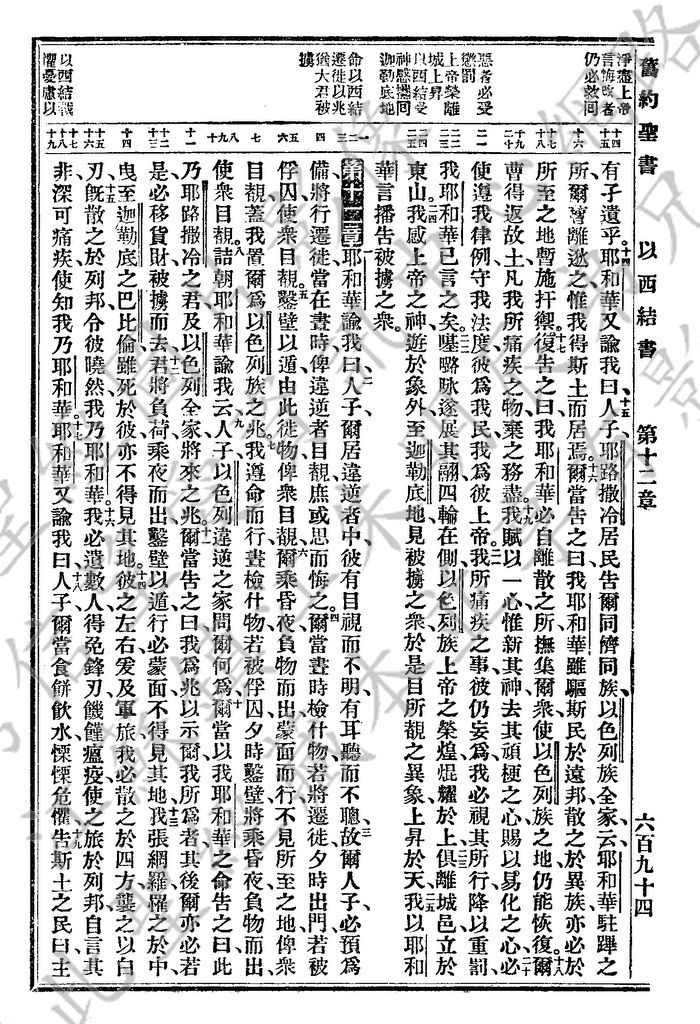 舊約聖書 以西結書 第十二章 六百九十四
淨盡上帝
言悔改者
仍必救回
惡者必受
懲罰
上帝榮離
城上昇
以西結受
神感攜回
迦勒底地
命以西結
遷徙以兆
猶大君被
擄
以西結戰
懼憂慮以
十四 十五 十六 十七 十八 十九 二十 二一 二二 二三 二四 二五 一 二 三 四 五 六 七 八 九 十 十一 十二 十三 十四 十五 十六 十七 十八 十九
有孑遺乎、十四耶和華又諭我曰、十五人子、耶路撒冷居民、告爾同儕同族、以色列族全家云、耶和華駐蹕之
所、爾曹離逖之、惟我得斯土而居焉、十六爾當告之曰、我耶和華雖驅斯民於遠邦、散之於異族、亦必於
所至之地、暫施扞禦、十七復告之曰、我耶和華必自離散之所、撫集爾衆、使以色列族之地、仍能恢復、十八爾
曹得返故土、凡我所痛疾之物、棄之務盡、十九我賦以一心、惟新其神、去其頑梗之心、賜以易化之心、二十必
使遵我律例、守我法度、彼爲我民、我爲彼上帝、二一我所痛疾之事、彼仍妄爲、我必視其所行、降以重罰、
我耶和華已言之矣、二二𡀔㘔𠸊遂展其翮、四輪在側、以色列族上帝之榮、煌煌耀於上、二三俱離城邑、立於
東山、二四我感上帝之神、遊於象外、至迦勒底地、見被擄之衆、於是目所覩之異象、上昇於天、二五我以耶和
華言、播告被擄之衆。
第十二章 一耶和華諭我曰、二人子、爾居違逆者中、彼有目視而不明、有耳聽而不聰、三故爾人子必預爲
備、將行遷徙、當在晝時、俾違逆者目覩、庶或思而悔之、四爾當晝時、檢什物、若將遷徙、夕時出門、若被
俘囚、使衆目覩、五鑿壁以遁、由此徙物、俾衆目覩、六爾乘昏夜、負物而出、蒙面而行、不見所至之地、俾衆
目覩、蓋我置爾爲以色列族之兆、七我遵命而行、晝檢什物、若被俘囚、夕時鑿壁、將乘昏夜、負物而出、
使衆目覩、八詰朝耶和華諭我云、九人子、以色列違逆之家、問爾何爲、十爾當以我耶和華之命告之曰、此
乃耶路撒冷之君、及以色列全家、將來之兆、十一爾當告之曰、我爲兆以示爾、我所爲者、其後爾亦必若
是、必移貨財、被擄而去、十二君將負荷、乘夜而出、鑿壁以遁、行必蒙面、不得見其地、十三我張網羅、罹之於中、
曳至迦勒底之巴比倫、雖死於彼、亦不得見其地、十四彼之左右、爰及軍旅、我必散之於四方、襲之以白
刃、十五旣散之於列邦、令彼曉然我乃耶和華、十六我必遺數人、得免鋒刃饑饉瘟疫、使之旅於列邦、自言其
非、深可痛疾、使知我乃耶和華、十七耶和華又諭我曰、十八人子、爾當食餅飲水、慄慄危懼、十九告斯土之民曰、主